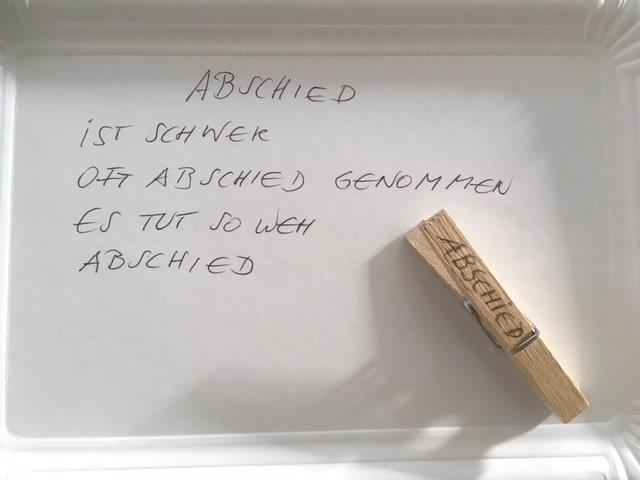 ABSCHIED
iST SCHWER
OFT ABSCHIED GENOMMEN
ES TUT SO WEH
ABSCHIED
ABSCHiED